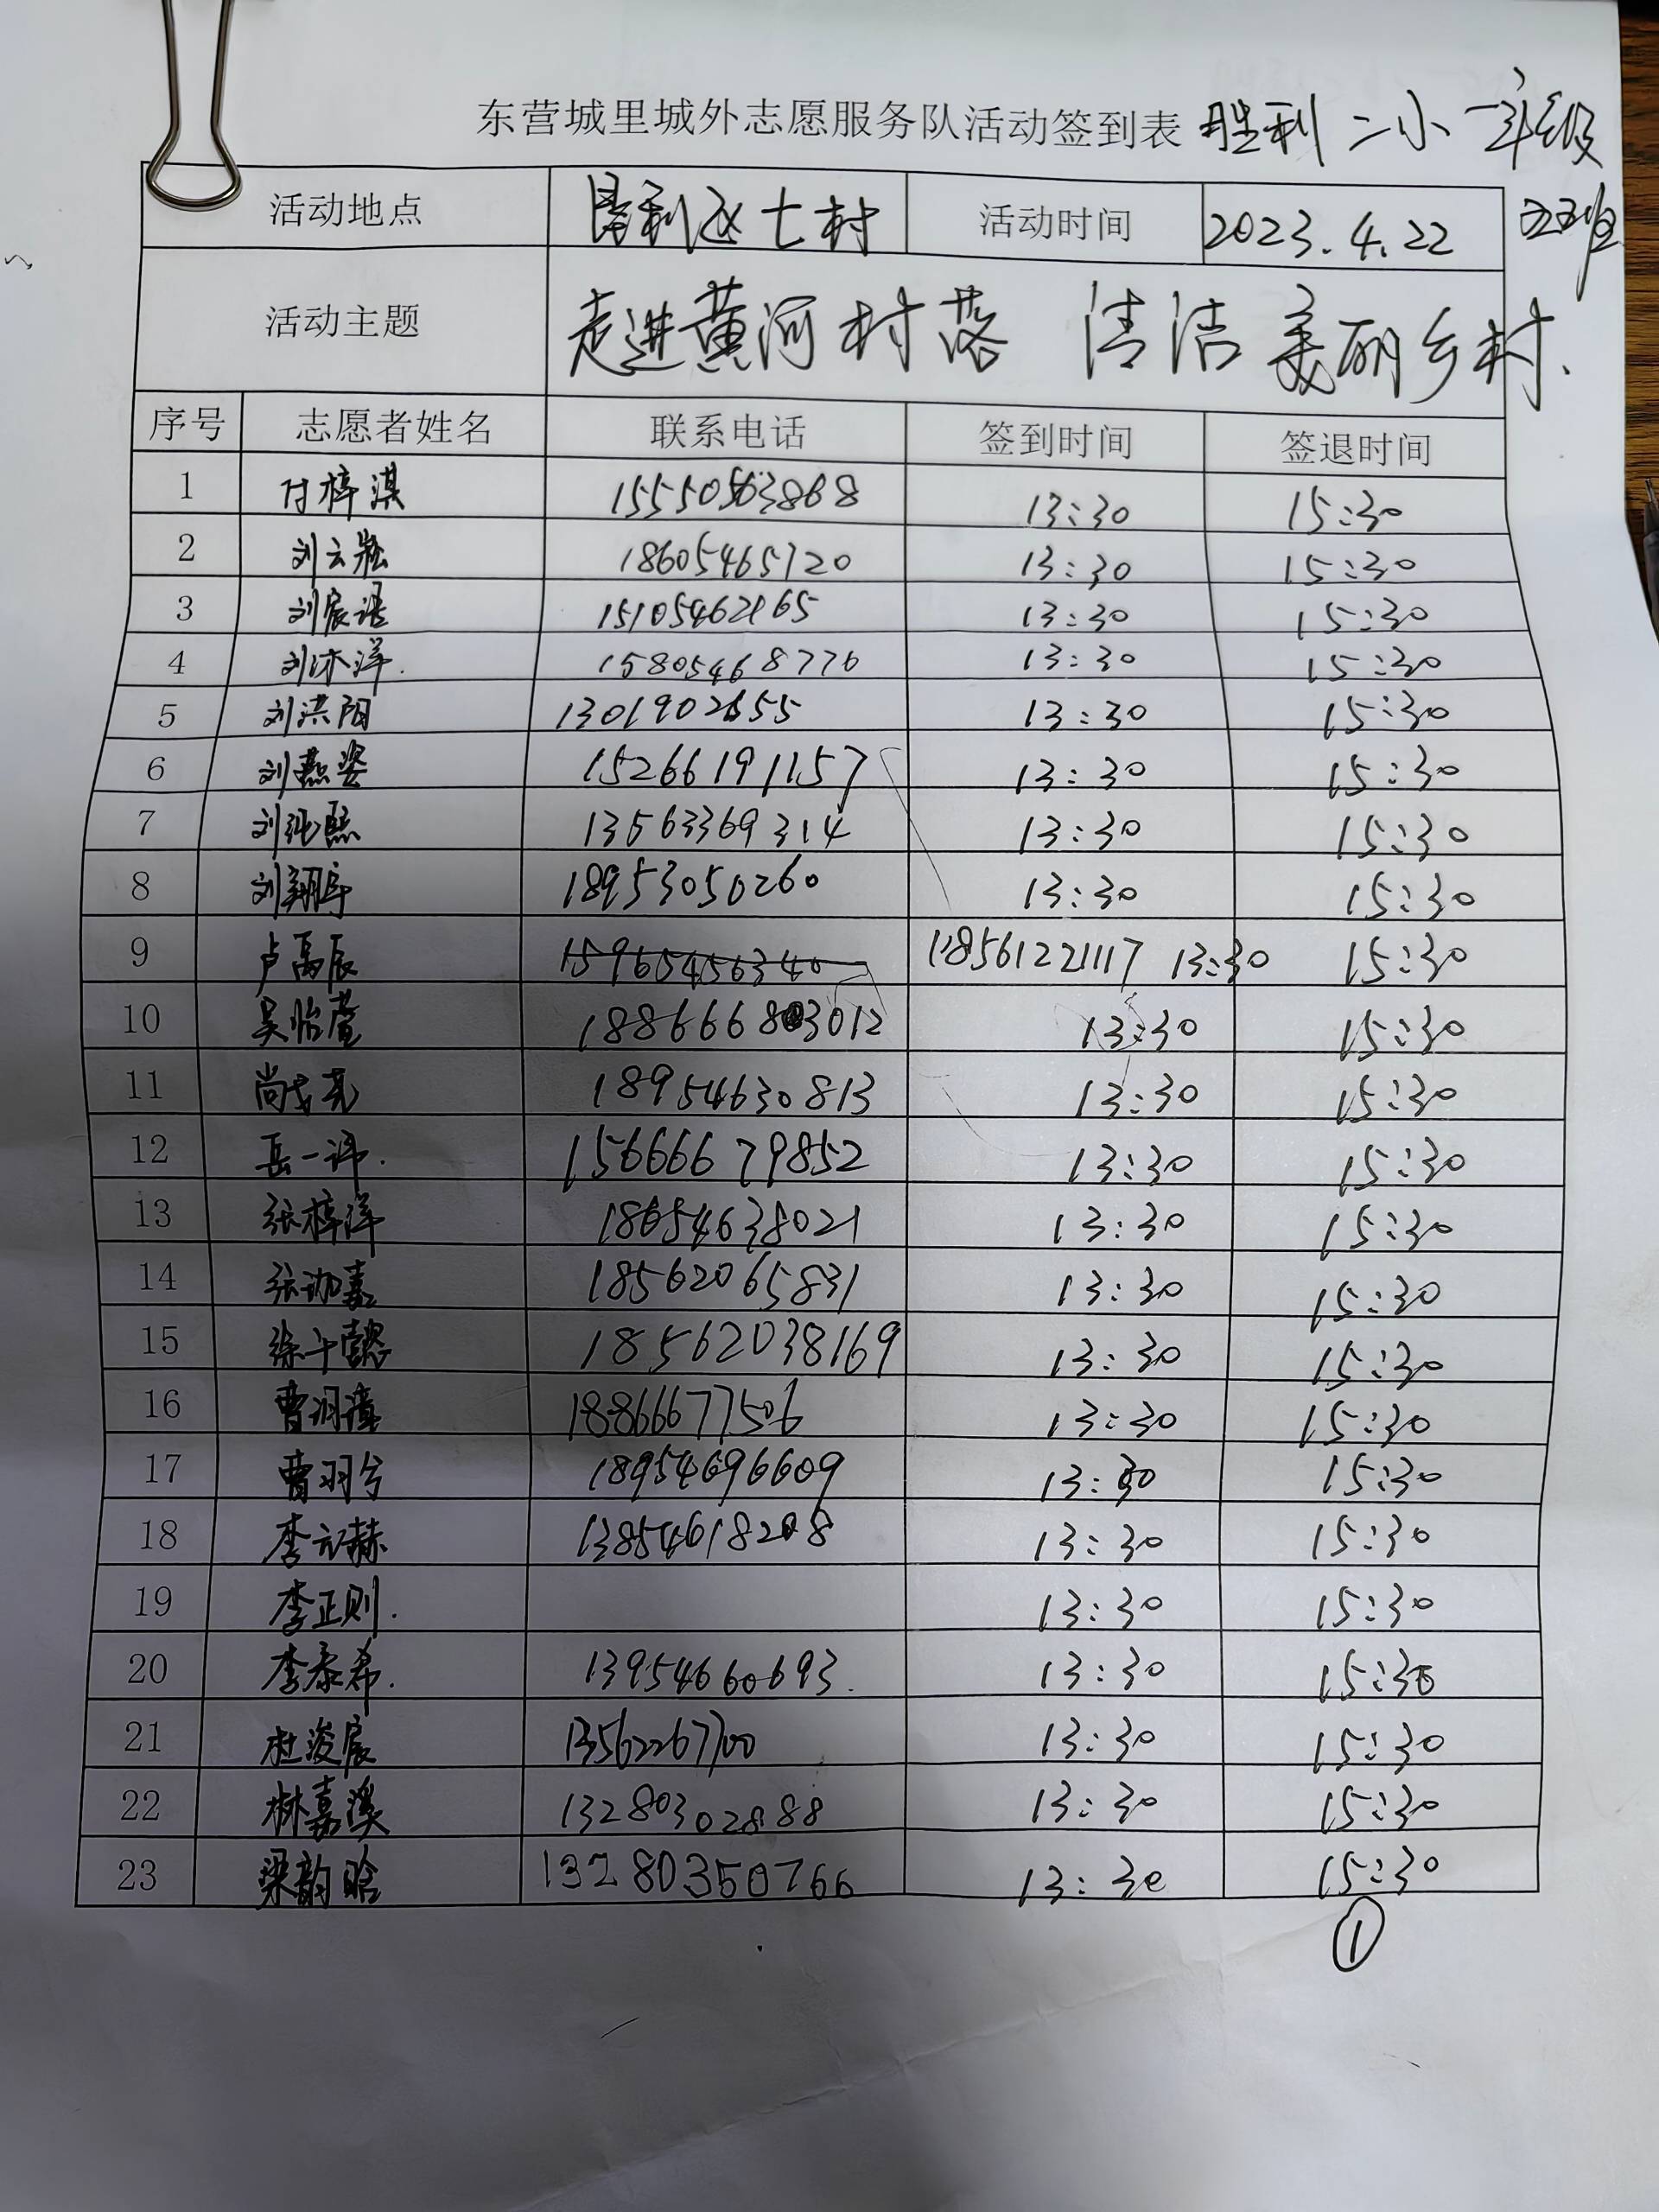 东营城里城外志愿服务队活动签到表 胜利二小一年级
五班
活动地点 胜利 七村 活动时间 2023.4.22
活动主题 走进黄河村落 清洁美丽乡村.
序号 志愿者姓名 联系电话 签到时间 签退时间
1 付梓淇 15550563868 13:30 15:30
2 刘云凇 18605465720 13:30 15:30
3 刘宸语 15105462165 13:30 15:30
4 刘沐洋. 15805468776 13:30 15:30
5 刘洪阳 13:30 15:30
6 刘燕姿 15266191157 13:30 15:30
7 刘纯熙 13563369314 13:30 15:30
8 刘翔宇 18953050260 13:30 15:30
9 卢禹辰 15965456340 18561221117 13:30 15:30
10 吴怡萱 13:30 15:30
11 尚 亮 18954630813 13:30 15:30
12 岳一诺. 15666679852 13:30 15:30
13 张梓洋 18654638021 13:30 15:30
14 张珈嘉 18562065831 13:30 15:30
15 徐千懿 18562038169 13:30 15:30
16 曹润 18866677506 13:30 15:30
17 曹羽兮 18954696609 13:30 15:30
18 李元赫 13854618208 13:30 15:30
19 李正则. 13:30 15:30
20 李泰希. 13954660693. 13:30 15:30
21 杜浚宸 13562267700 13:30 15:30
22 林嘉溪 13280302888 13:30 15:30
23 梁韵晗 13280350766 13:30 15:30
①